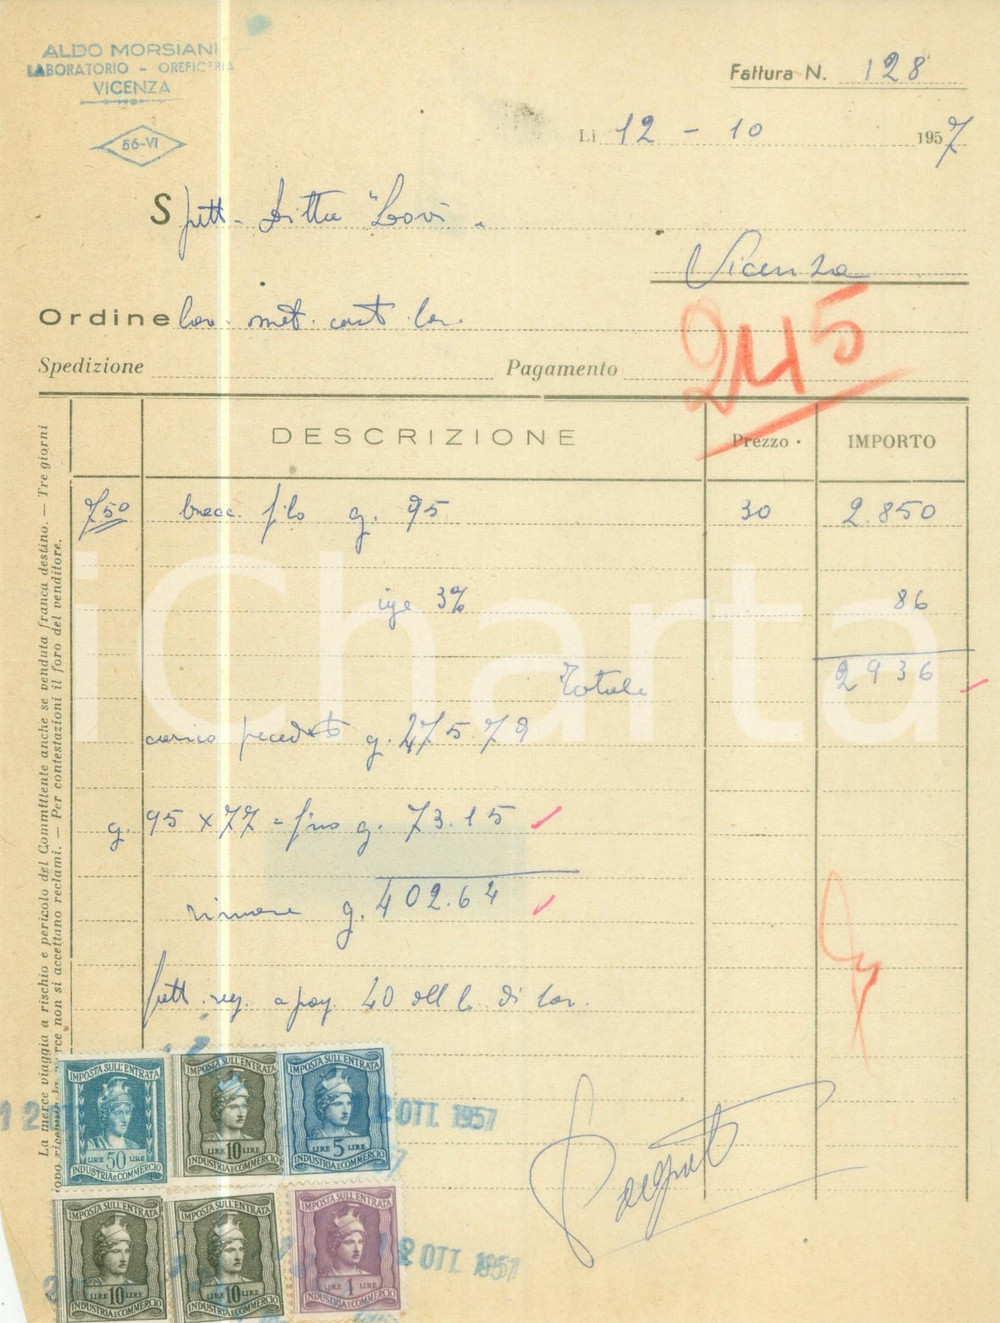 ALDO MORSIANI
LABORATORIO - OREFICERIA
VICENZA
56-VI
Fattura N. 128
Li 12 - 10 1957
Spett. Ditta "Lovi"
Vicenza
Ordine lav. met. cont lav.
245
Spedizione Pagamento
DESCRIZIONE Prezzo IMPORTO
750 bracc. filo g. 95 30 2.850
ige 3% 86
Totale 2936
carico precedente g. 475.79
g. 95 x 77 = fino g. 73.15
rimane g. 402.64
di lav.
La merce viaggia a rischio e pericolo del Committente anche se venduta franca destino. — Tre giorni
dopo ricevuta la merce non si accettano reclami. — Per contestazioni il foro del venditore.
IMPOSTA SULL'ENTRATA
LIRE 50 LIRE
INDUSTRIA E COMMERCIO
IMPOSTA SULL'ENTRATA
LIRE 10 LIRE
INDUSTRIA E COMMERCIO
IMPOSTA SULL'ENTRATA
LIRE 5 LIRE
INDUSTRIA E COMMERCIO
12 OTT. 1957
IMPOSTA SULL'ENTRATA
LIRE 10 LIRE
INDUSTRIA E COMMERCIO
IMPOSTA SULL'ENTRATA
LIRE 10 LIRE
INDUSTRIA E COMMERCIO
IMPOSTA SULL'ENTRATA
LIRE 1 LIRE
INDUSTRIA E COMMERCIO
12 OTT. 1957
iCharta